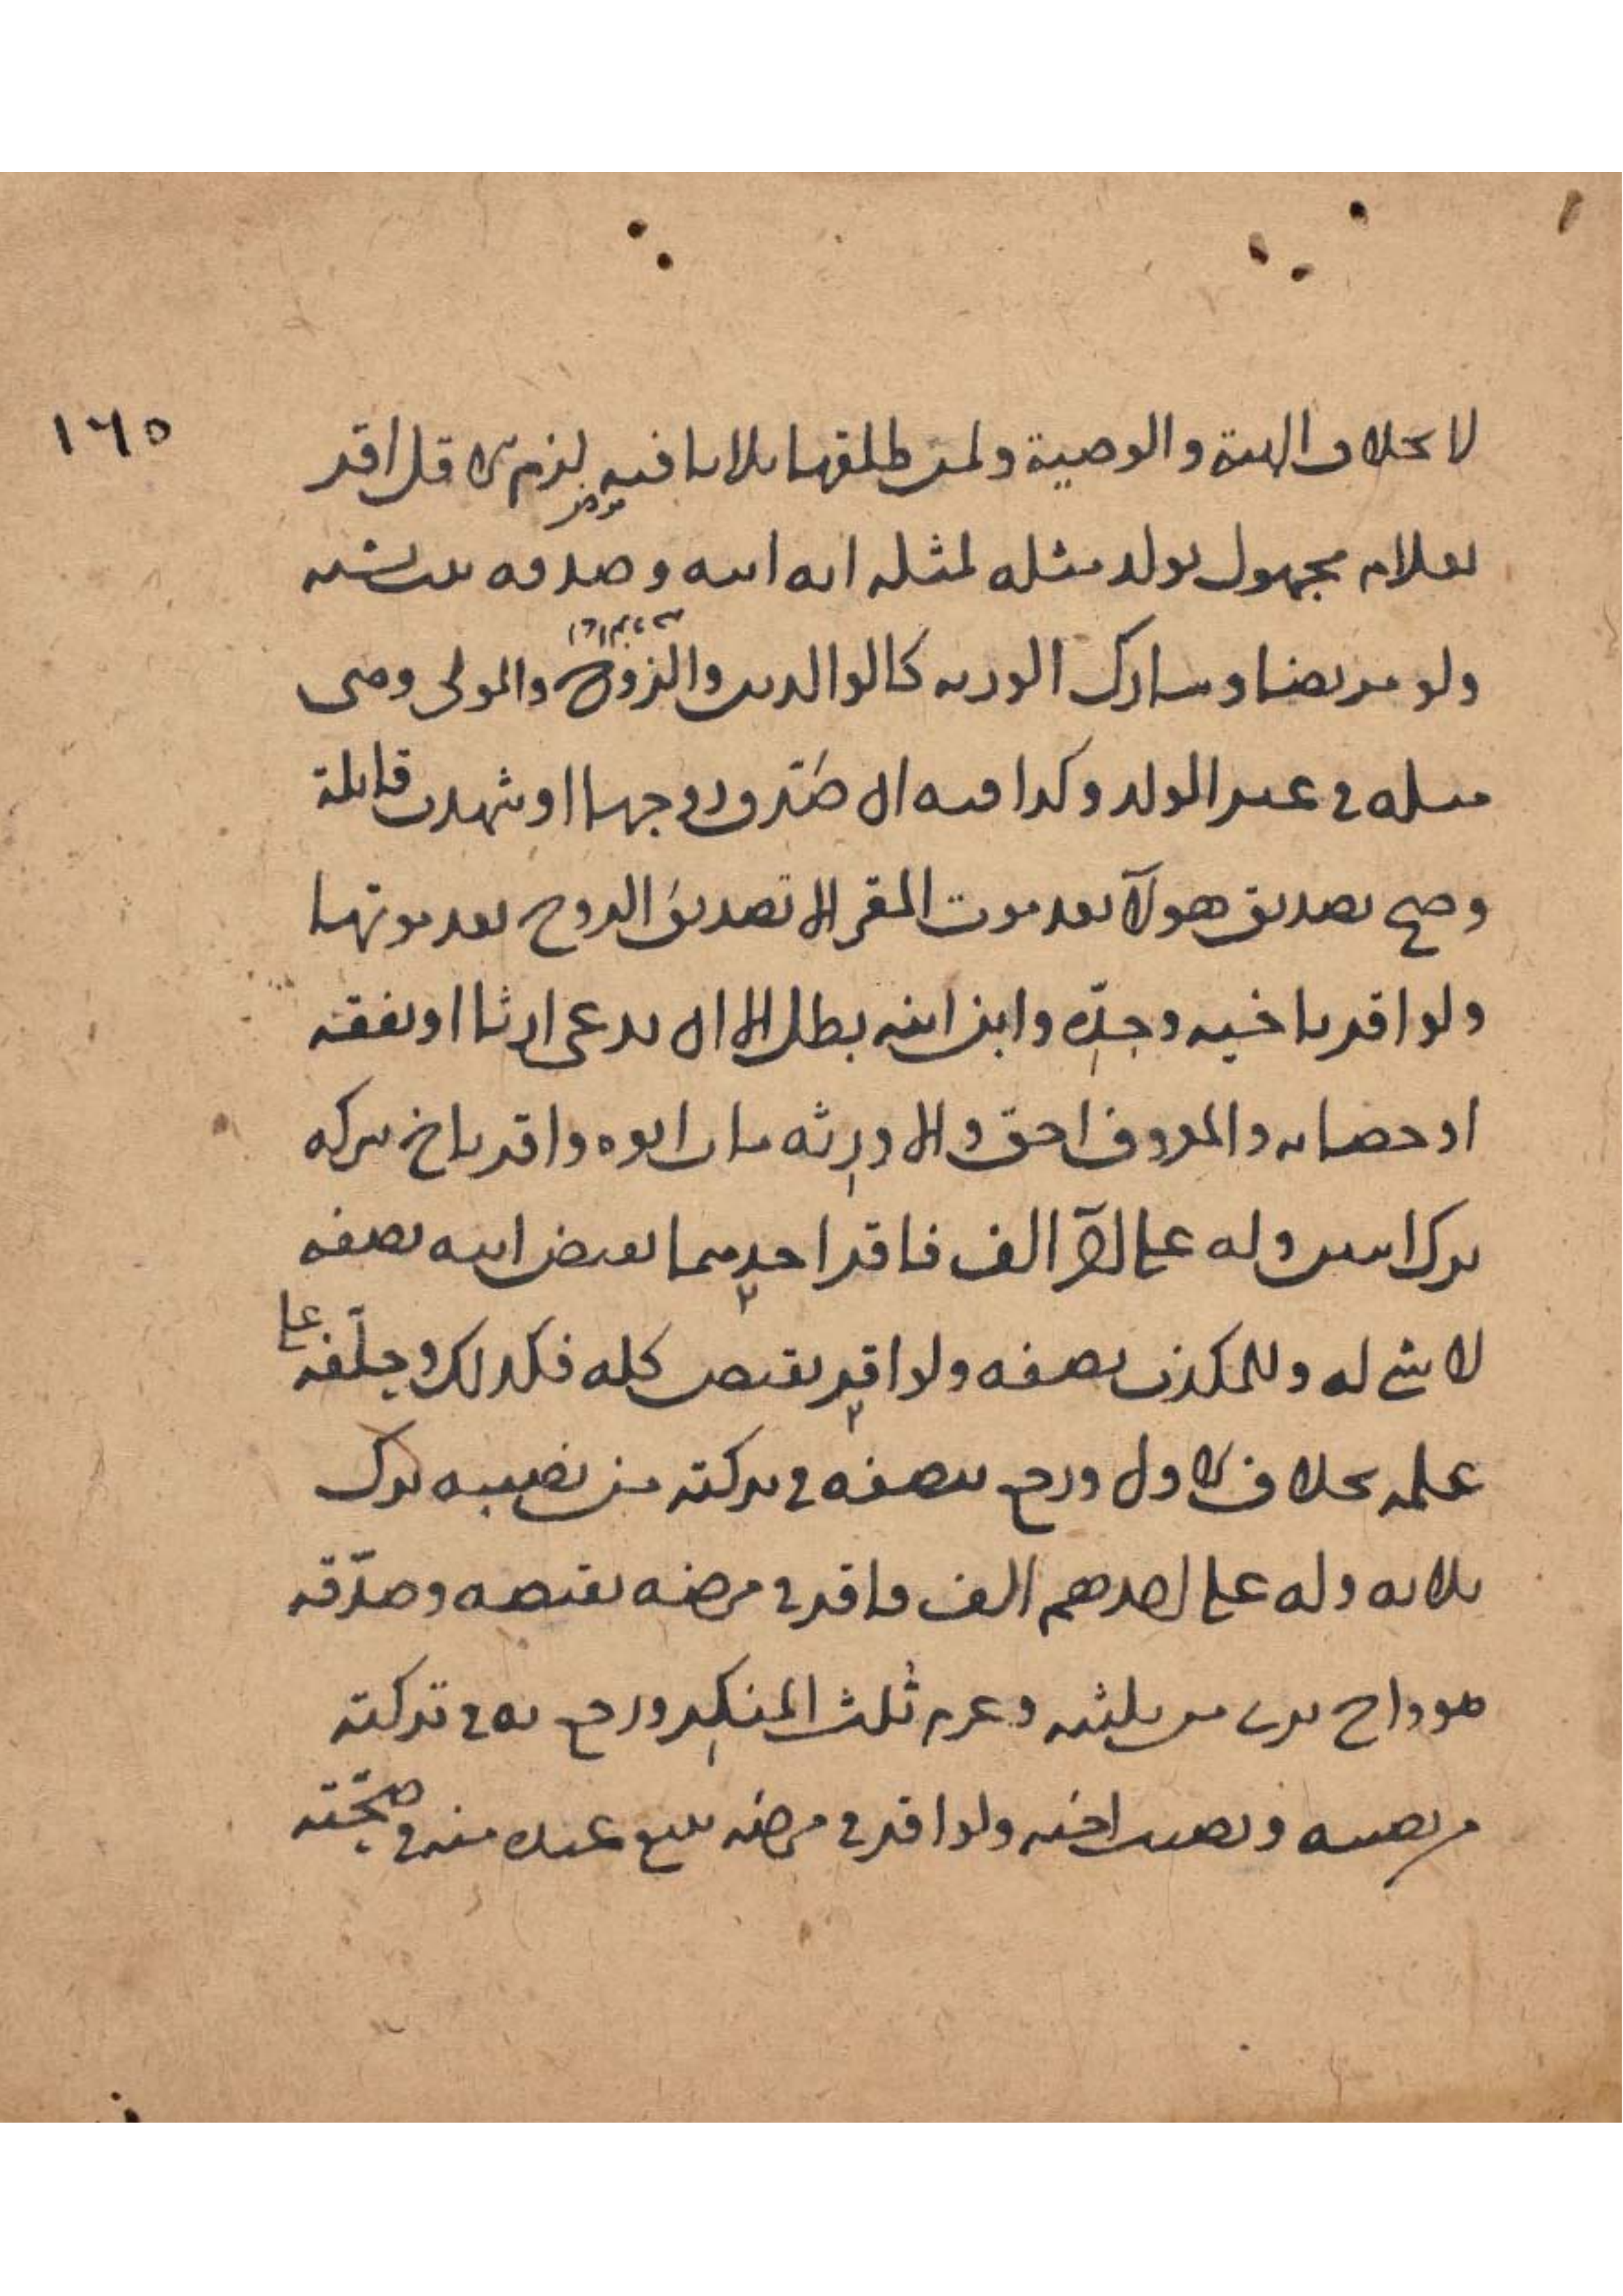 ١٦٥
لا بخلاف الهبة والوصية ولمن طلقها ثلاثا فيه لزم الاقل اقر
بغلام مجهول يولد مثله لمثله انه ابنه وصدقه ثبت نسبه
ولو مريضا وشارك الورثة كالوالدين والزوج والمولى وصح
مثله في غير الولد وكذا منه ان صدق زوجها او شهدت قابلة
وصح تصديق هولآ بعد موت المقر الا تصديق الزوج بعد موتها
ولو اقر باخيه وجدّه وابن ابنه بطل الا ان يدعى ارثا او نفقة
او حضانة والمعروف احق والا ورثه مات ابوه واقر باخ شركه
ترك ابنين وله على آخر الف فاقر احدهما بقبض ابيه نصفه
لا شئ له وللمكذب نصفه ولو اقر بقبض كله فكذلك وحلّفه على
علمه بخلاف الاول ورجع بنصفه في تركته من نصيبه ترك
ثلاثة وله على احدهم الف فاقر في مرضه بقبضه وصدّقه
هو واخ برئ من ثلثيه وغرم ثلث المنكر ورجع به في تركته
من نصيبه ونصيب اخيه ولو اقر في مرضه ببيع عبده منه في صحّته